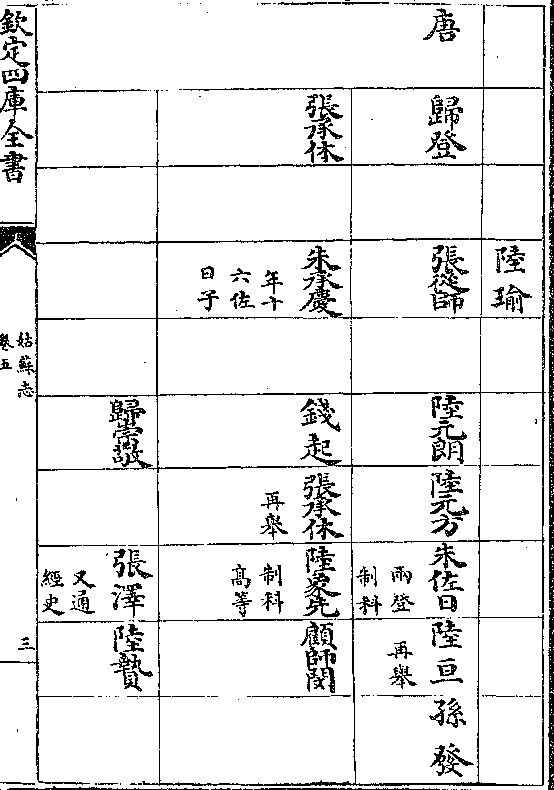 陸瑜
唐
歸登
張從師
陸元朗
陸元方
朱佐日
兩登
制科
陸亘
再舉
孫發
張承休
朱承慶
年十
六佐
日子
錢起
張承休
再舉
陸象先
制科
高等
顧師閔
歸崇敬
張澤
又通
經史
陸贄
欽定四庫全書
姑蘇志
卷五
三